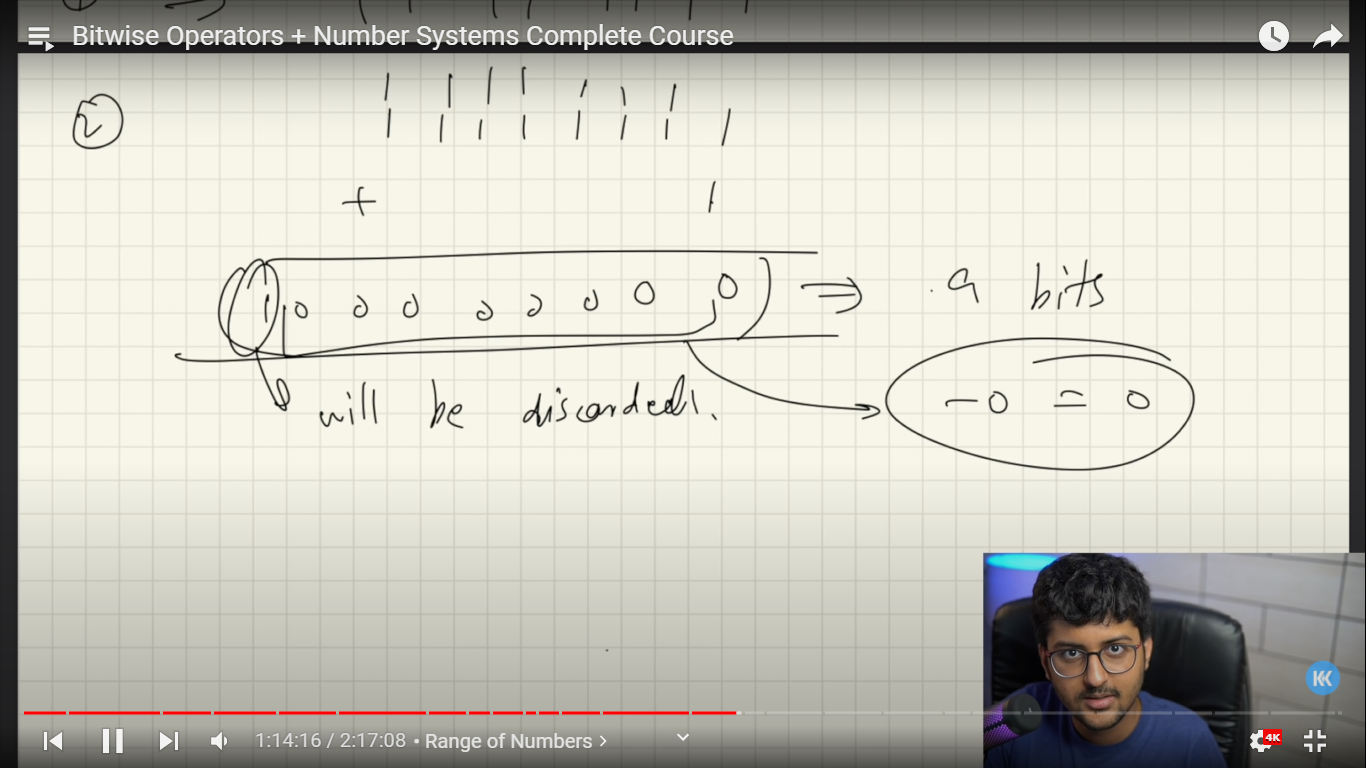 Bitwise Operators + Number Systems Complete Course
2
1 1 1 1 1 1 1
1 1 1 1 1 1 1 1
+ 1
1 0 0 0 0 0 0 0 0 ⇒ 9 bits
will be discarded.
-0 = 0
KK
1:14:16 / 2:17:08 • Range of Numbers >
4K